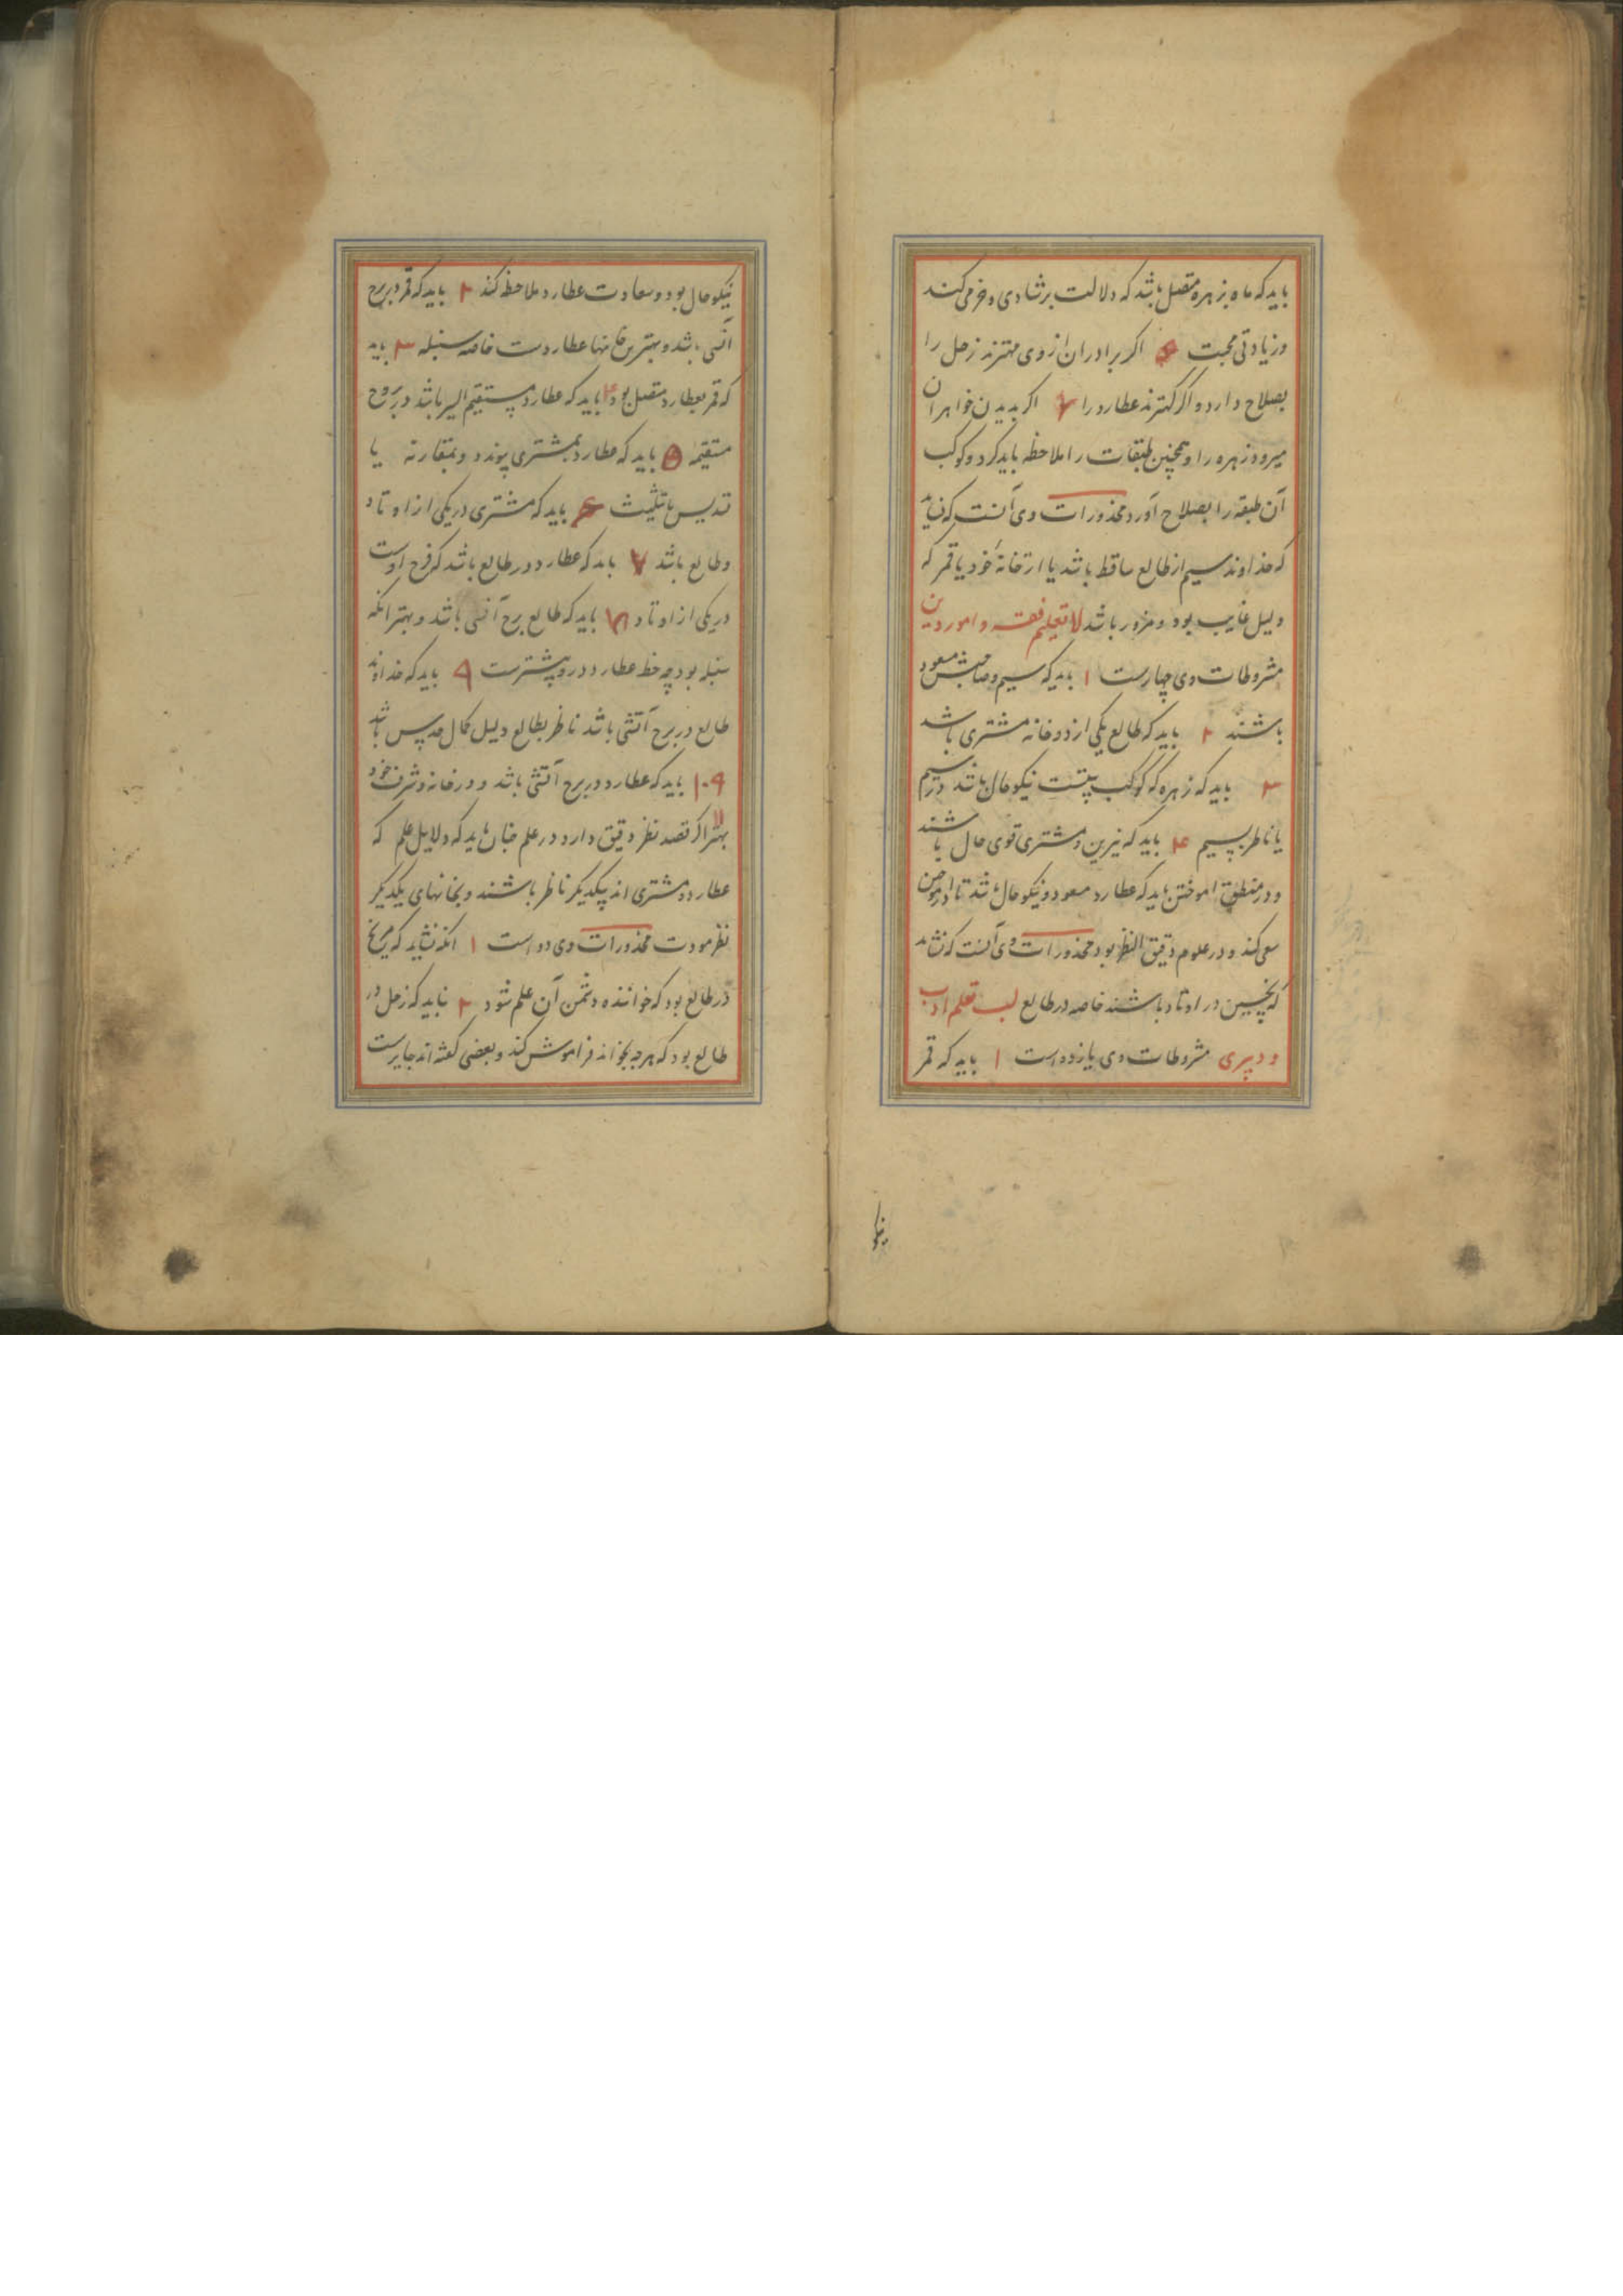 باید که ماه بزهره متصل باشد که دلالت بر شادی و خرمی کند
و زیادتی محبت ۵ اکر برادران از وی مهترند زحل را
بصلاح دارد و اکر کهترند عطارد را ۶ اکر بدیدن خواهران
میرود زهره را و همچنین طبقات را ملاحظه باید کرد و کوکب
آن طبقه را بصلاح آورد محذورات وی آنست که نباید
که خداوند سیم از طالع ساقط باشد یا از خانهٔ خود یا قمر که
دلیل غایب بود و مزور باشد لا تعلیم فقه و امور دین
مشروطات وی چهارست ۱ باید که سیم و صاحبش مسعود
باشند ۲ باید که طالع یکی از دو خانه مشتری باشد
۳ باید که زهره که کوکب نیتست نیکو حال باشد در سیم
یا ناظر بسیم ۴ باید که نیرین و مشتری قوی حال باشند
و در منطق اموختن باید که عطارد مسعود و نیکو حال باشد تا در اموختن
سعی کند و در علوم دقیق النظر بود محذورات وی آنست که نشاید
که نحسین در اوتاد باشند خاصه در طالع لب تعلم ادب
و دبیری مشروطات وی یازده است ۱ باید که قمر
نیکو
نیکو حال بود و سعادت عطارد ملاحظه کند ۲ باید که قمر در برج
انسی باشد و بهترین خانها عطاردست خاصه سنبله ۳ باید
که قمر بعطارد متصل بود ۴ باید که عطارد مستقیم السیر باشد در بروج
مستقیمه ۵ باید که عطارد بمشتری پیوندد و بمقارنه یا
تسدیس یا تثلیث ۶ باید که مشتری در یکی از اوتاد
و طالع باشد ۷ باید که عطارد در طالع باشد که فرح اوست
در یکی از اوتاد ۸ باید که طالع برج انسی باشد و بهتر انکه
سنبله بود چه حظ عطارد درو بیشترست ۹ باید که خداوند
طالع در برج آتشی باشد ناظر بطالع دلیل کمال باشد
۱۰ باید که عطارد در برج آتشی باشد و در خانه و شرف خود
بهتر ۱۱ اکر قصد نظر دقیق دارد در علم چنان باید که دلایل علم که
عطارد و مشتری اند بیکدیکر ناظر باشند و بخانهای یکدیکر
نظر مودت محذورات وی دو است ۱ انکه نشاید که مریخ
در طالع بود که خواننده دشمن آن علم شود ۲ نباید که زحل در
طالع بود که هرچه بخواند فراموش کند و بعضی کفته اند جایزست